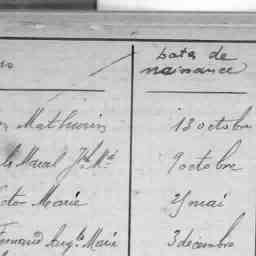 date de
naissance
Mathurin 13 octobre
Maval Jh Md 9 octobre
Marie 25 mai
Fernand Augte Marie 3 décembre